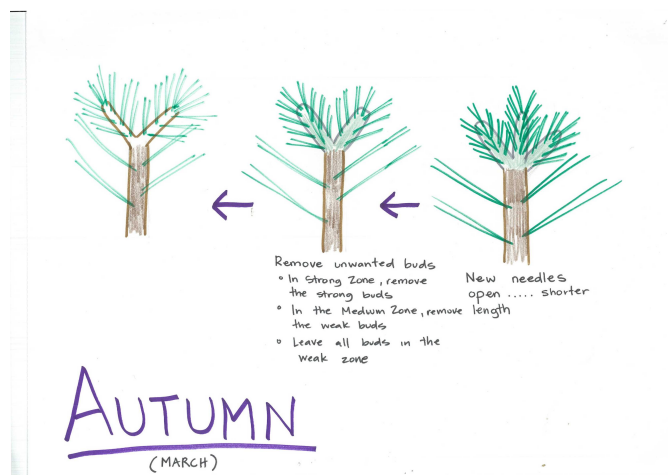 Remove unwanted buds
° In Strong Zone, remove
the strong buds
° In the Medium Zone, remove
the weak buds
° Leave all buds in the
weak zone
New needles
open ..... shorter
length
AUTUMN
(MARCH)